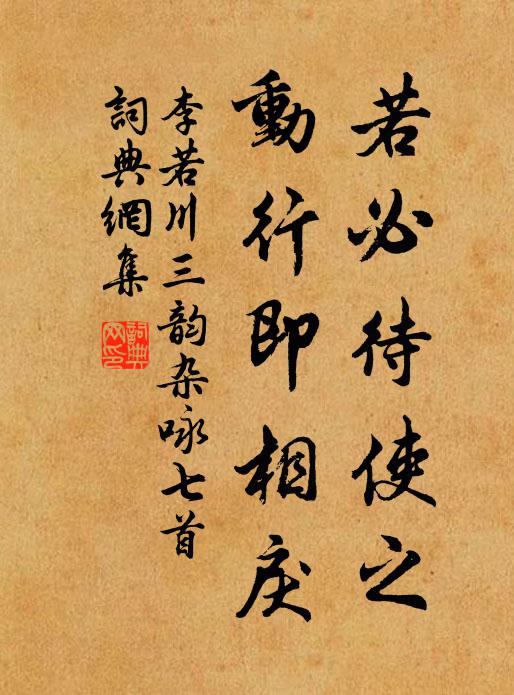 若必待使之
動行即相戾
李若川三韵杂咏七首
詞典網集
詞典
网印